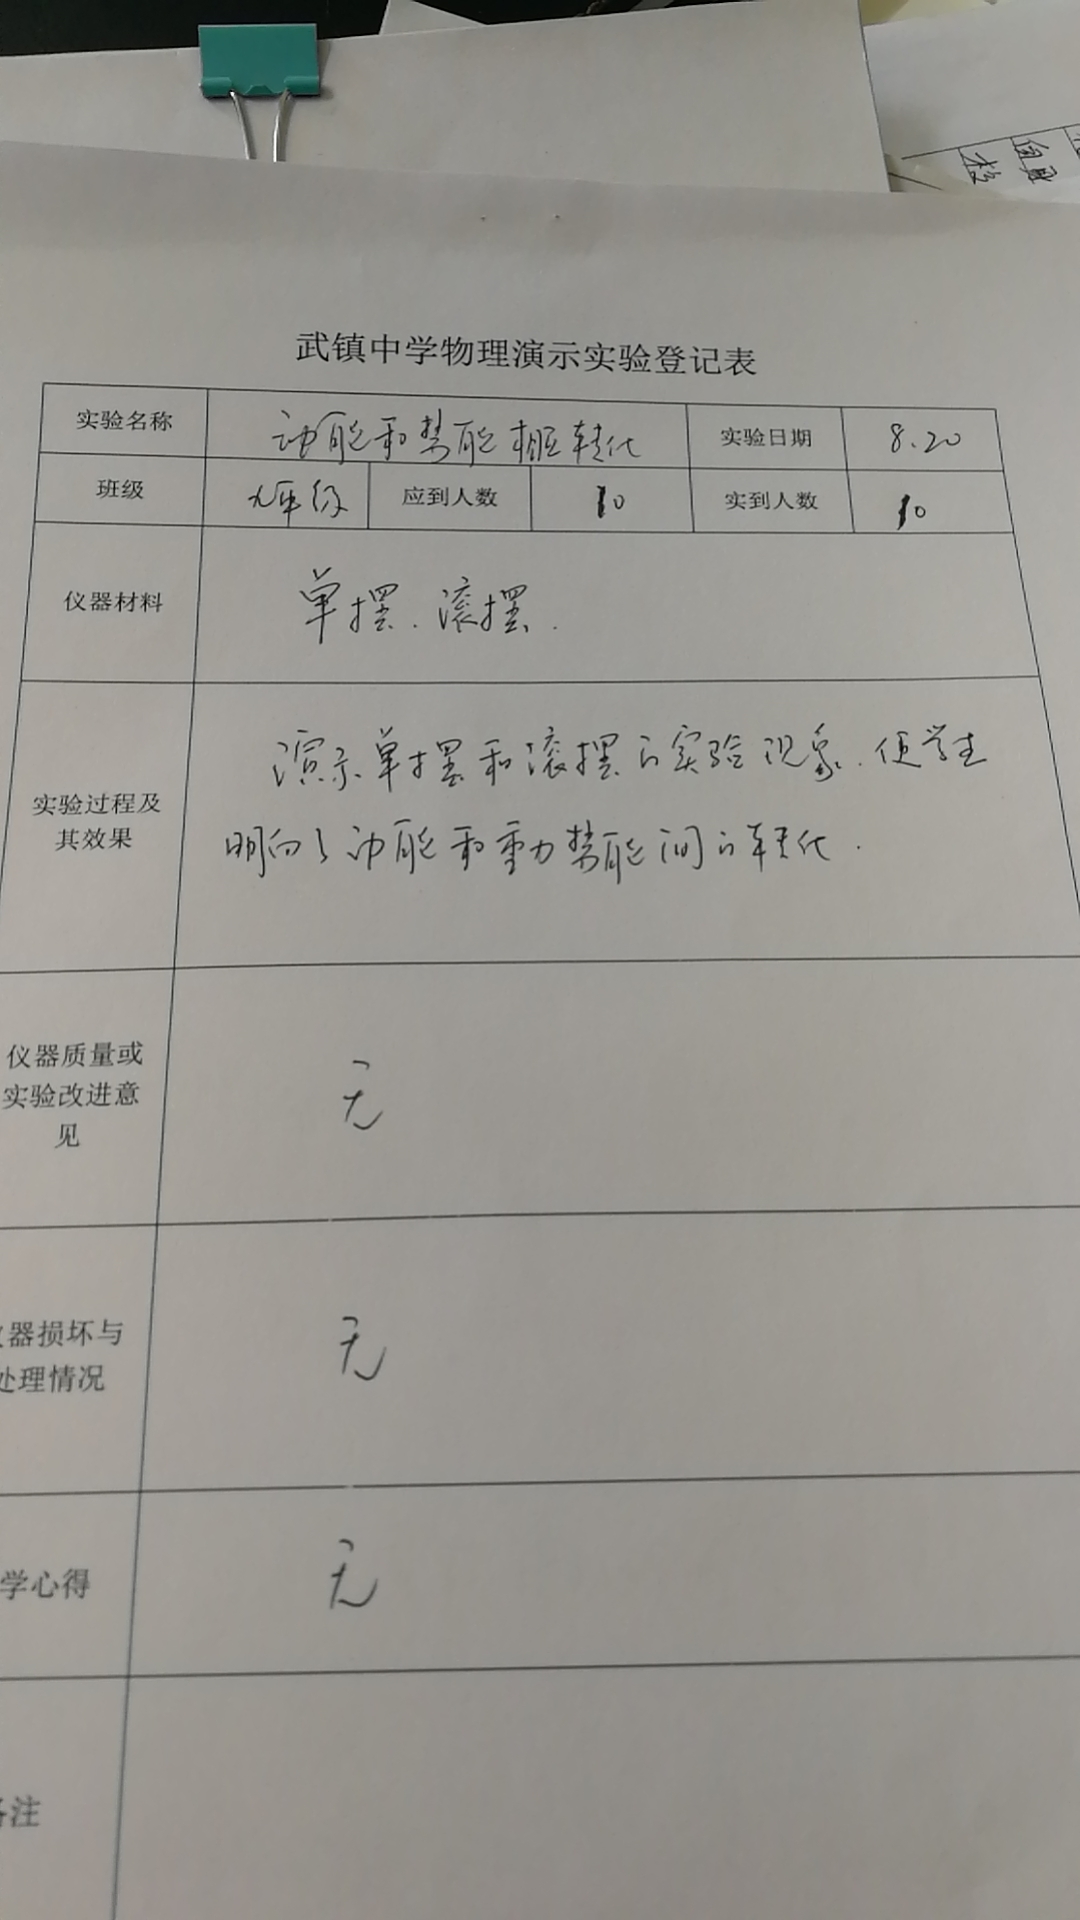 武镇中学物理演示实验登记表
实验名称 动能和势能相互转化 实验日期 8.20
班级 九年级 应到人数 10 实到人数 10
仪器材料 单摆.滚摆.
实验过程及
其效果
演示单摆和滚摆的实验现象.使学生
明白了动能和重力势能间的转化.
仪器质量或
实验改进意
见
无
器损坏与
处理情况
无
学心得 无
注